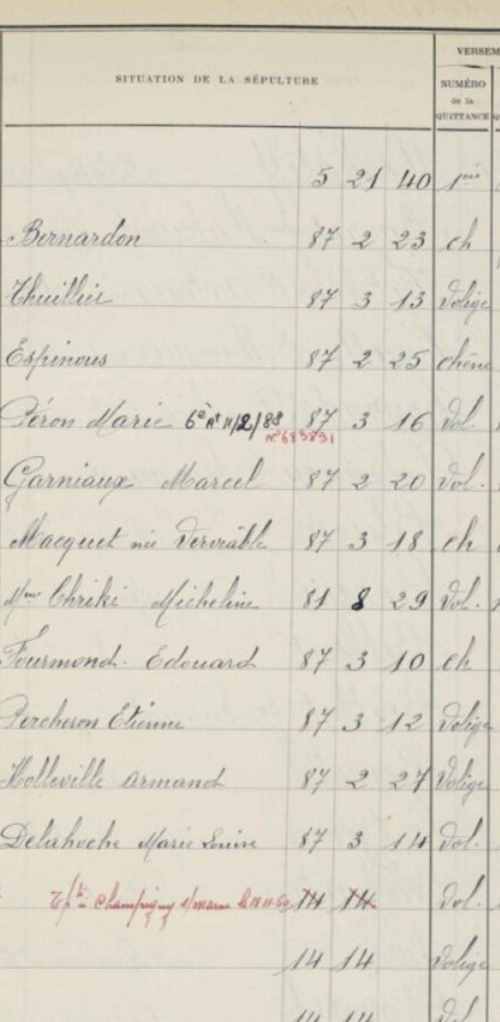 VERSEM
SITUATION DE LA SÉPULTURE
NUMÉRO
de la
QUITTANCE
5 21 40
Bernardon 87 2 23 ch
Thuillier 87 3 13 Volige
Espinous 87 2 25 chêne
Péron Marie 6e At 11/2/88 87 3 16 Vol
Garniaux Marcel 87 2 20 Vol.
Macquet née 87 3 18 ch
Mme Chriki Micheline 81 8 29 Vol.
Fourmond. Edouard 87 3 10 ch
Percheron Etienne 87 3 12 Volige
Holleville Armand 87 2 27 Volige
Delahoche Marie Louise 87 3 14 Vol.
Champigny s/marne 14 14 Vol.
14 14 Volige
14 14 Vol